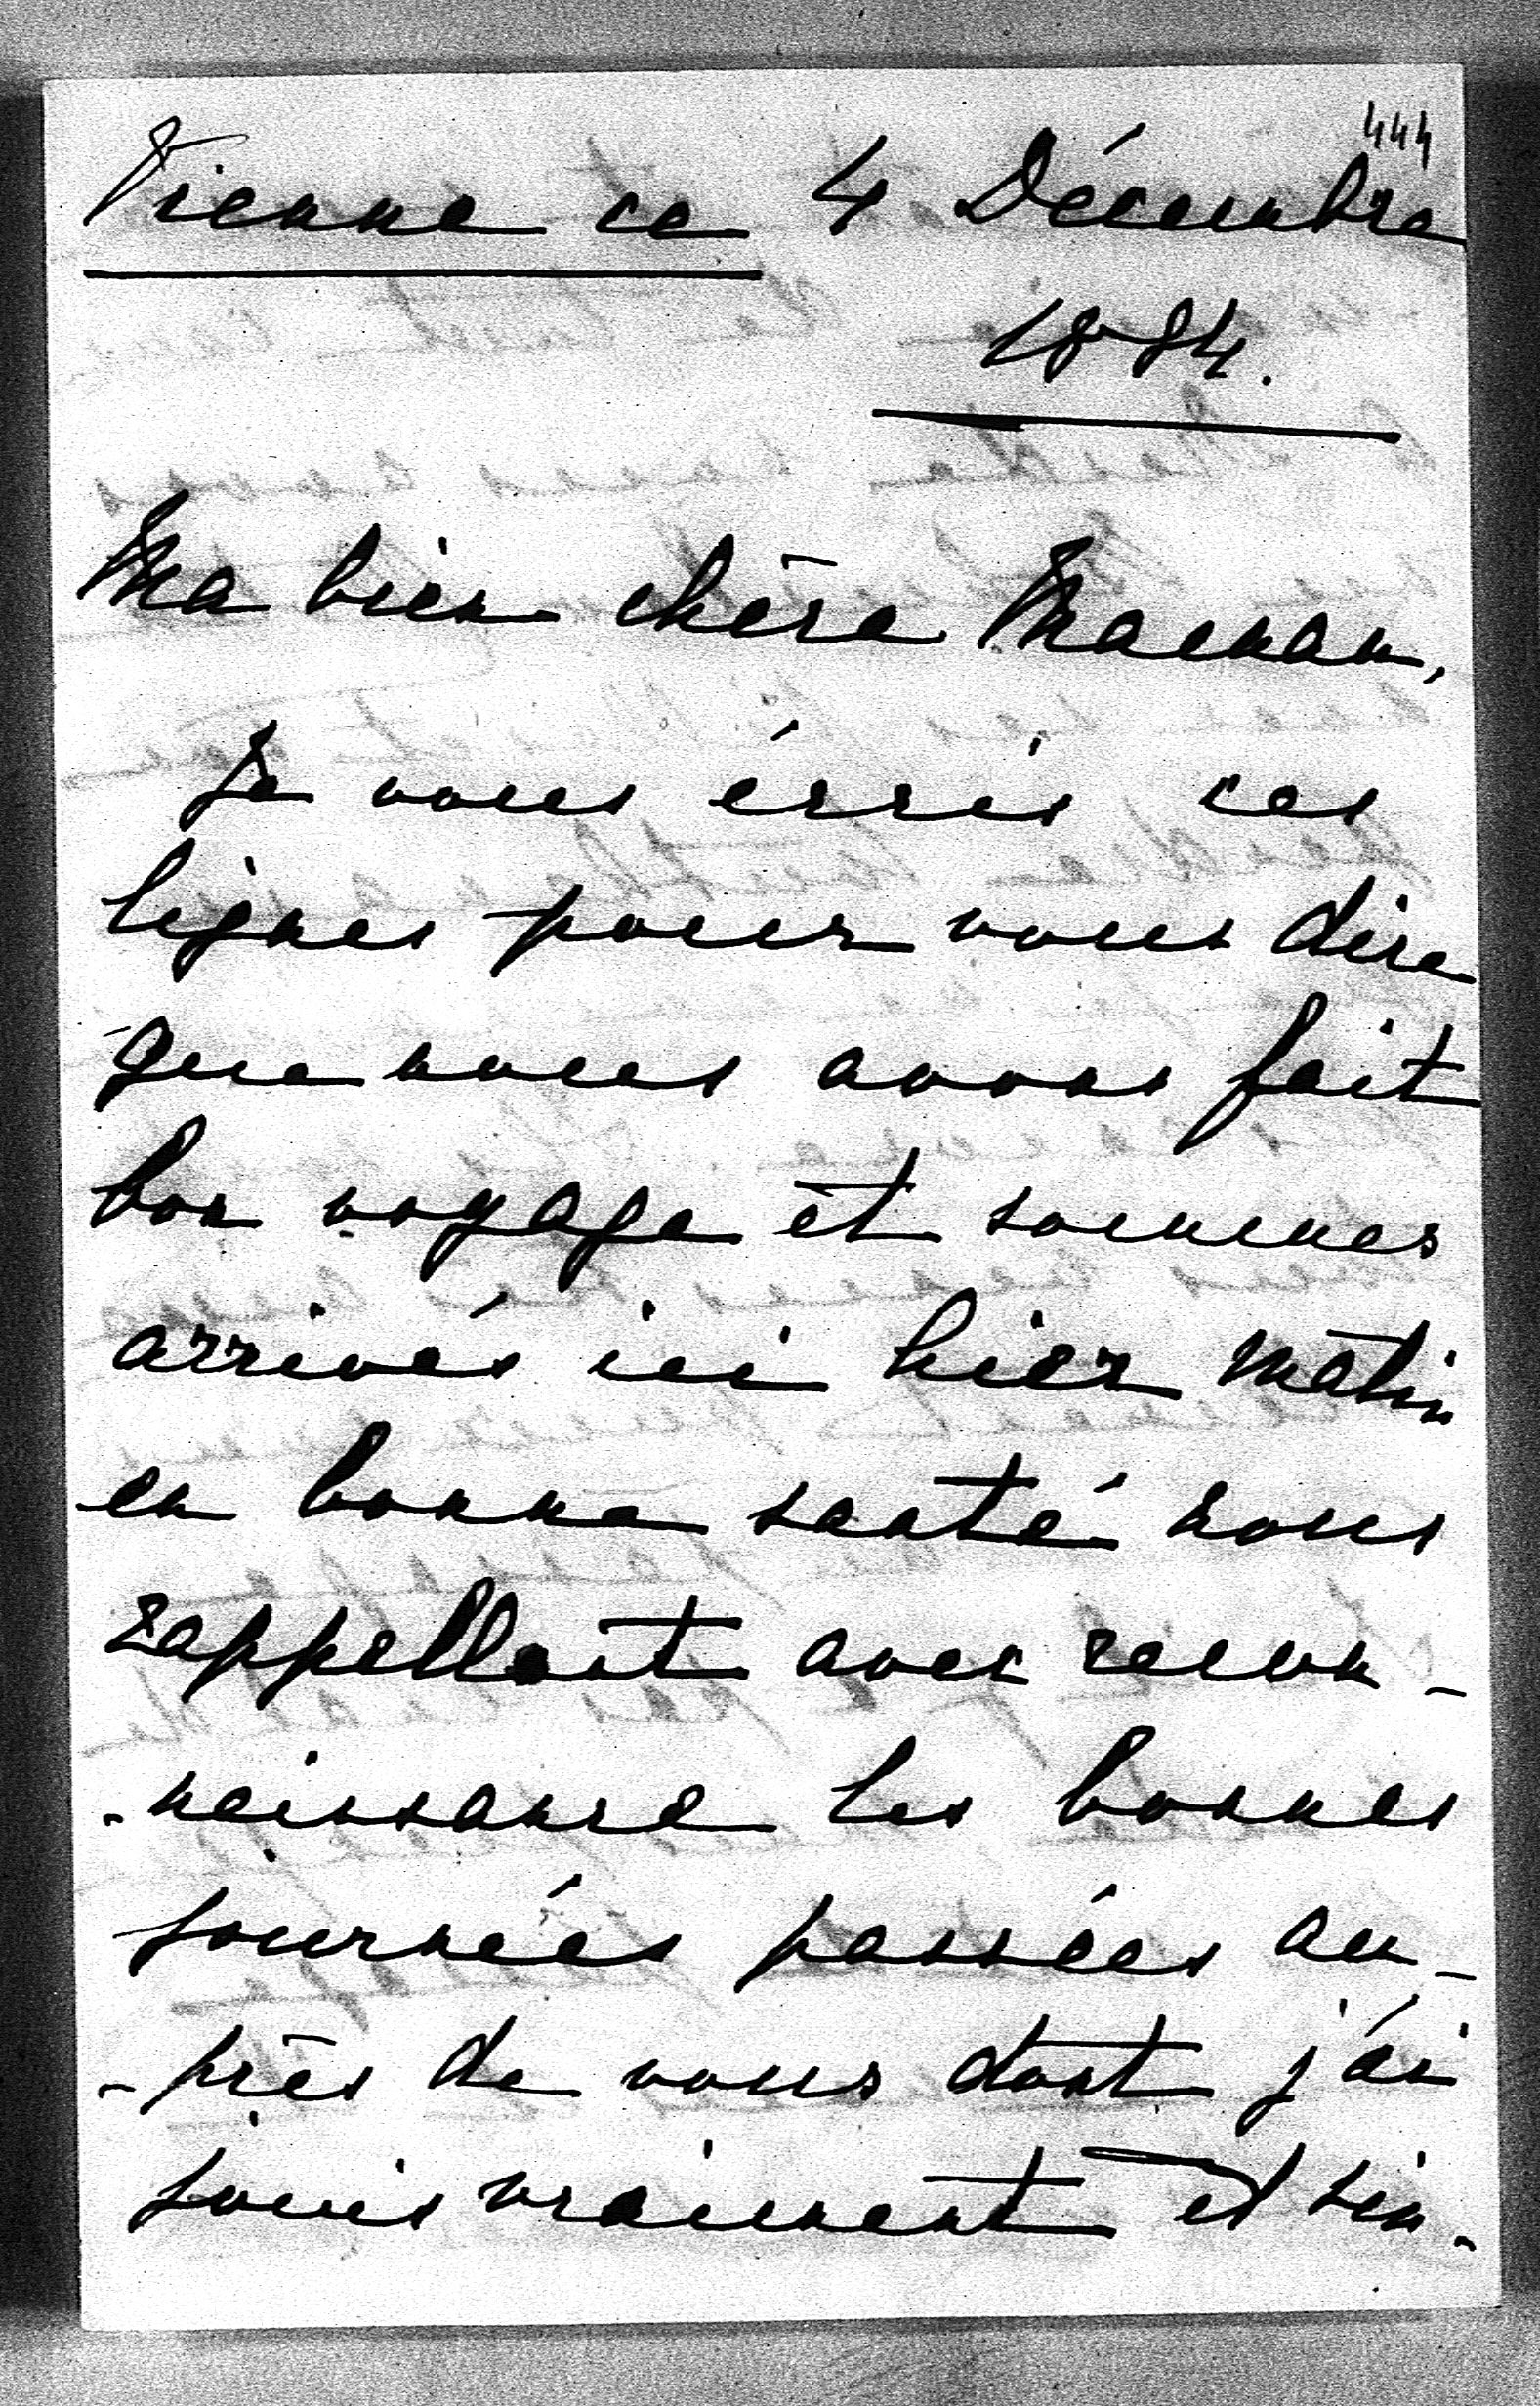 444
Vienne ce 4 Décembre
1884.
Ma bien chère Maman,
Je vous écris ces
lignes pour vous dire
que nous avons fait
bon voyage et sommes
arrivés ici hier matin
en bonne santé nous
rappellant avec recon-
-naissance les bonnes
journées passées au-
-près de vous dont j'ai
jouis vraiment et sin-